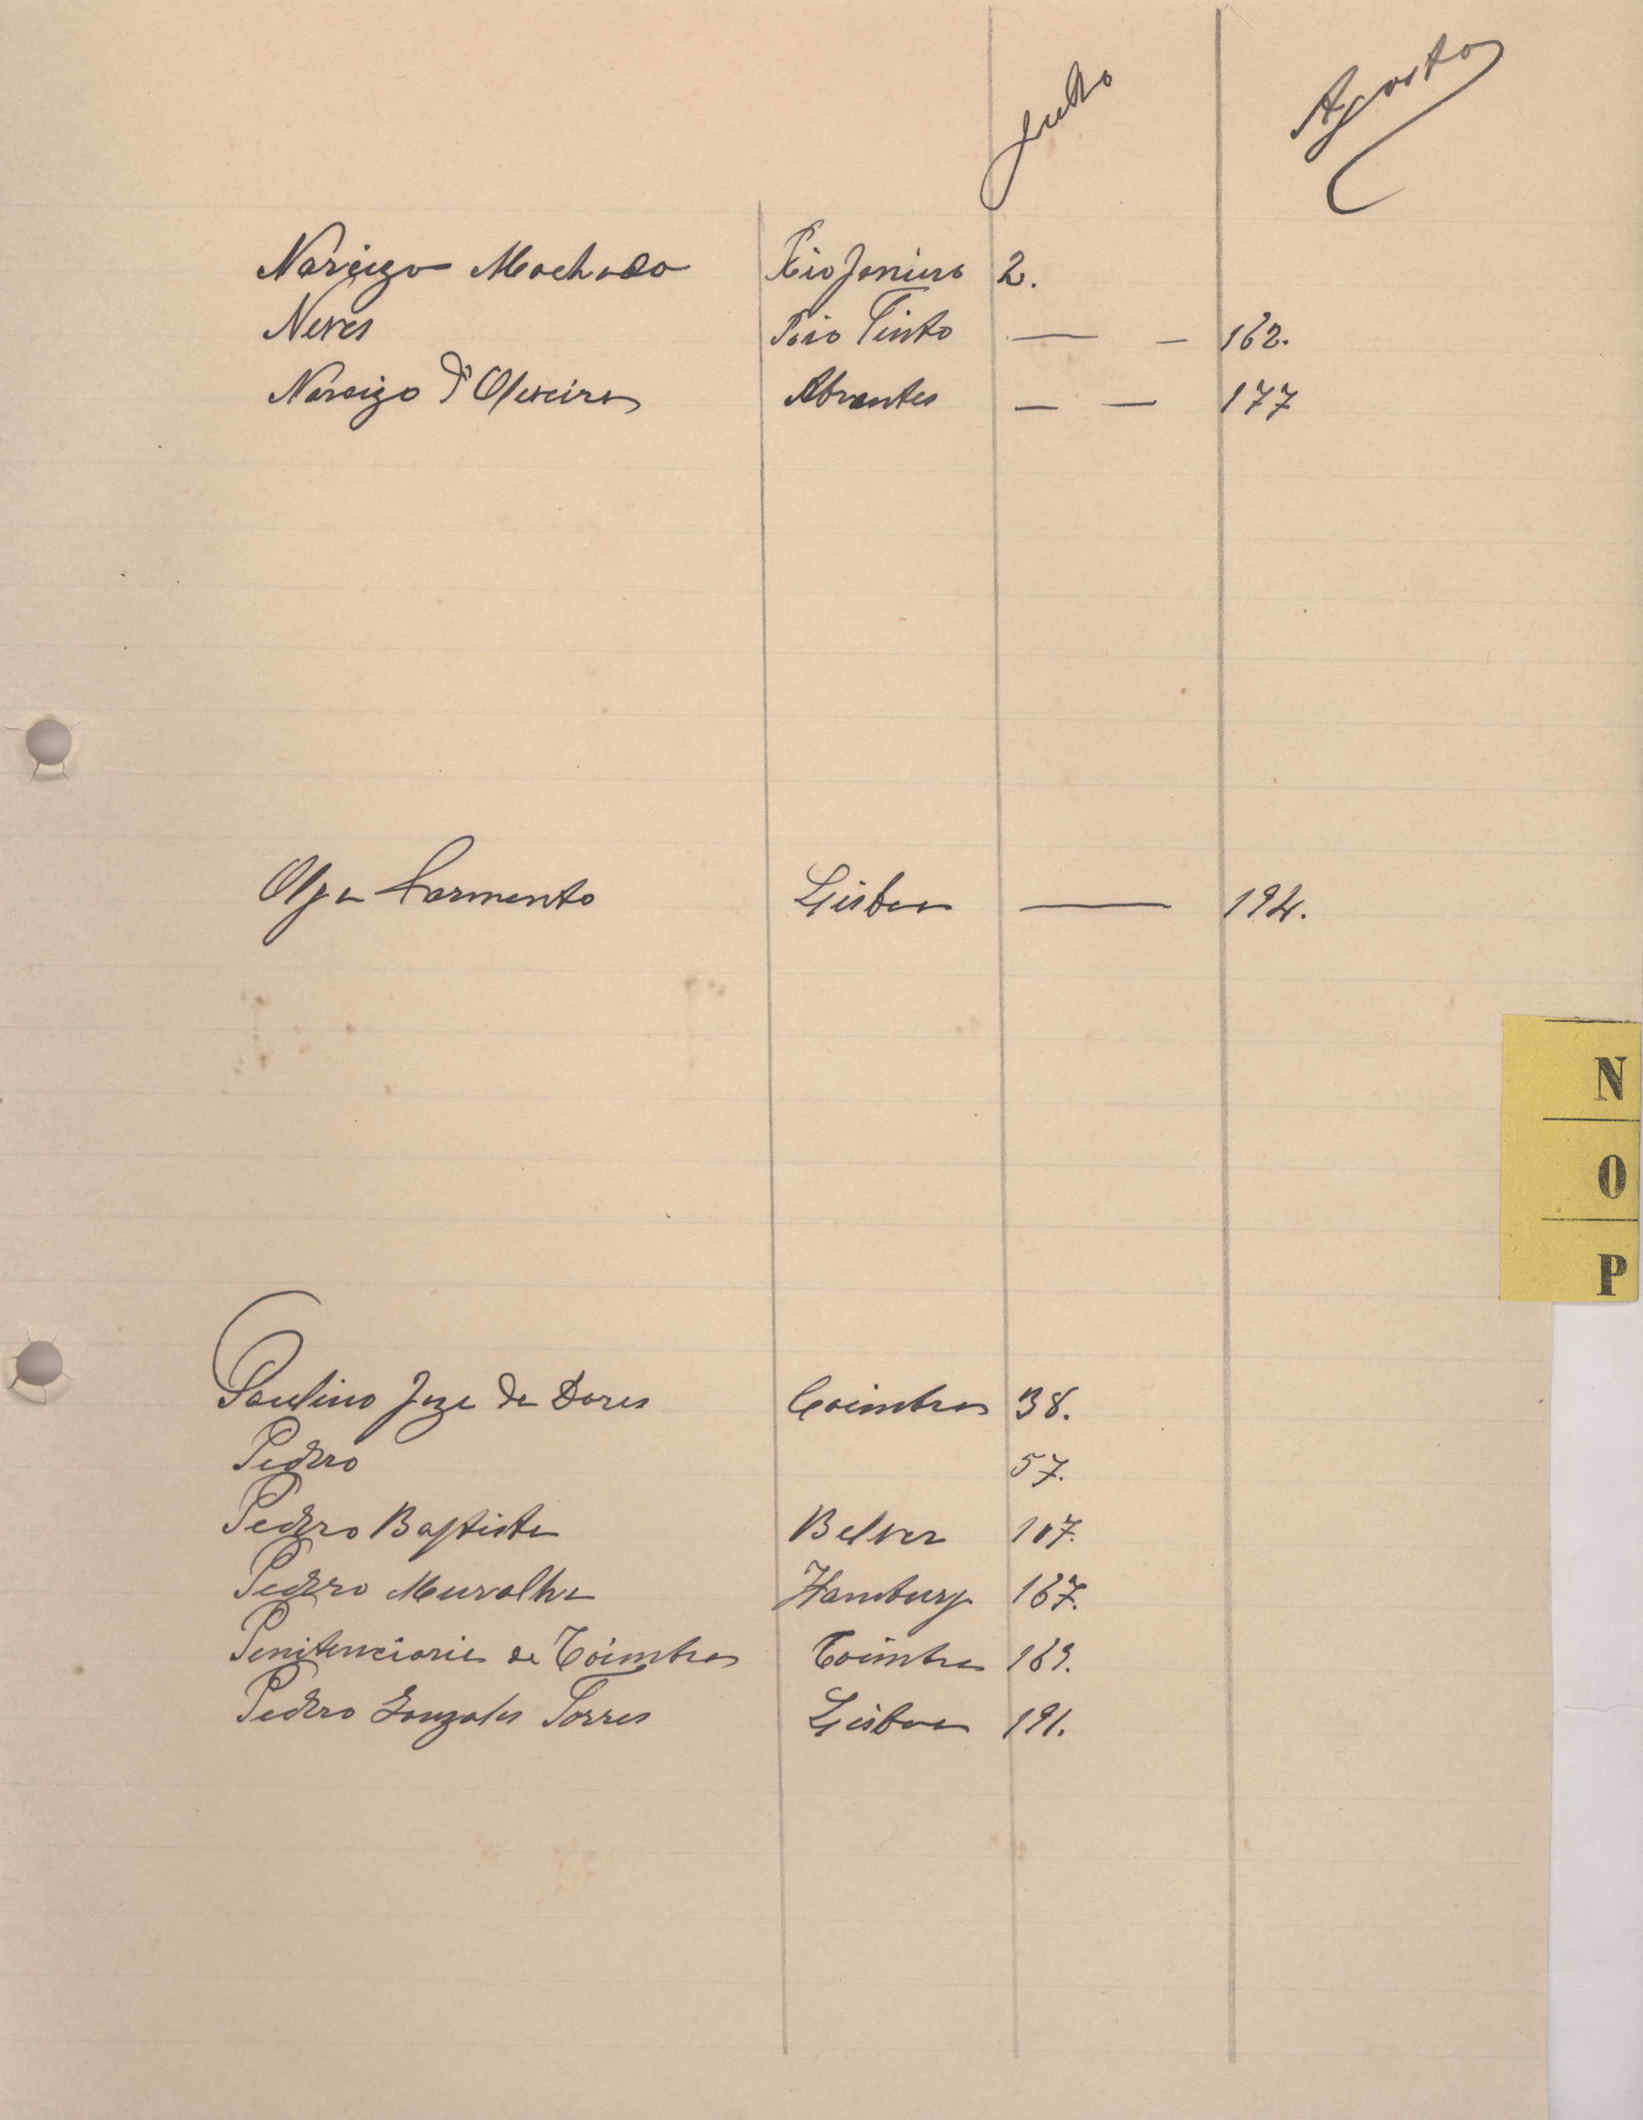 Julho Agosto
Narcizo Machado Rio Janeiro 2.
Neves Rio Tinto — — 162.
Narcizo d'Oliveira Abrantes — — 177
Olga Sarmento Lisboa — 194.
N
O
P
Paulino Joze de Dores Coimbra 38.
Pedro 57.
Pedro Baptista Belver 107.
Pedro Muralha Hamburg 167.
Penitenciaria de Coimbra Coimbra 169.
Pedro Gonzales Torres Lisboa 191.